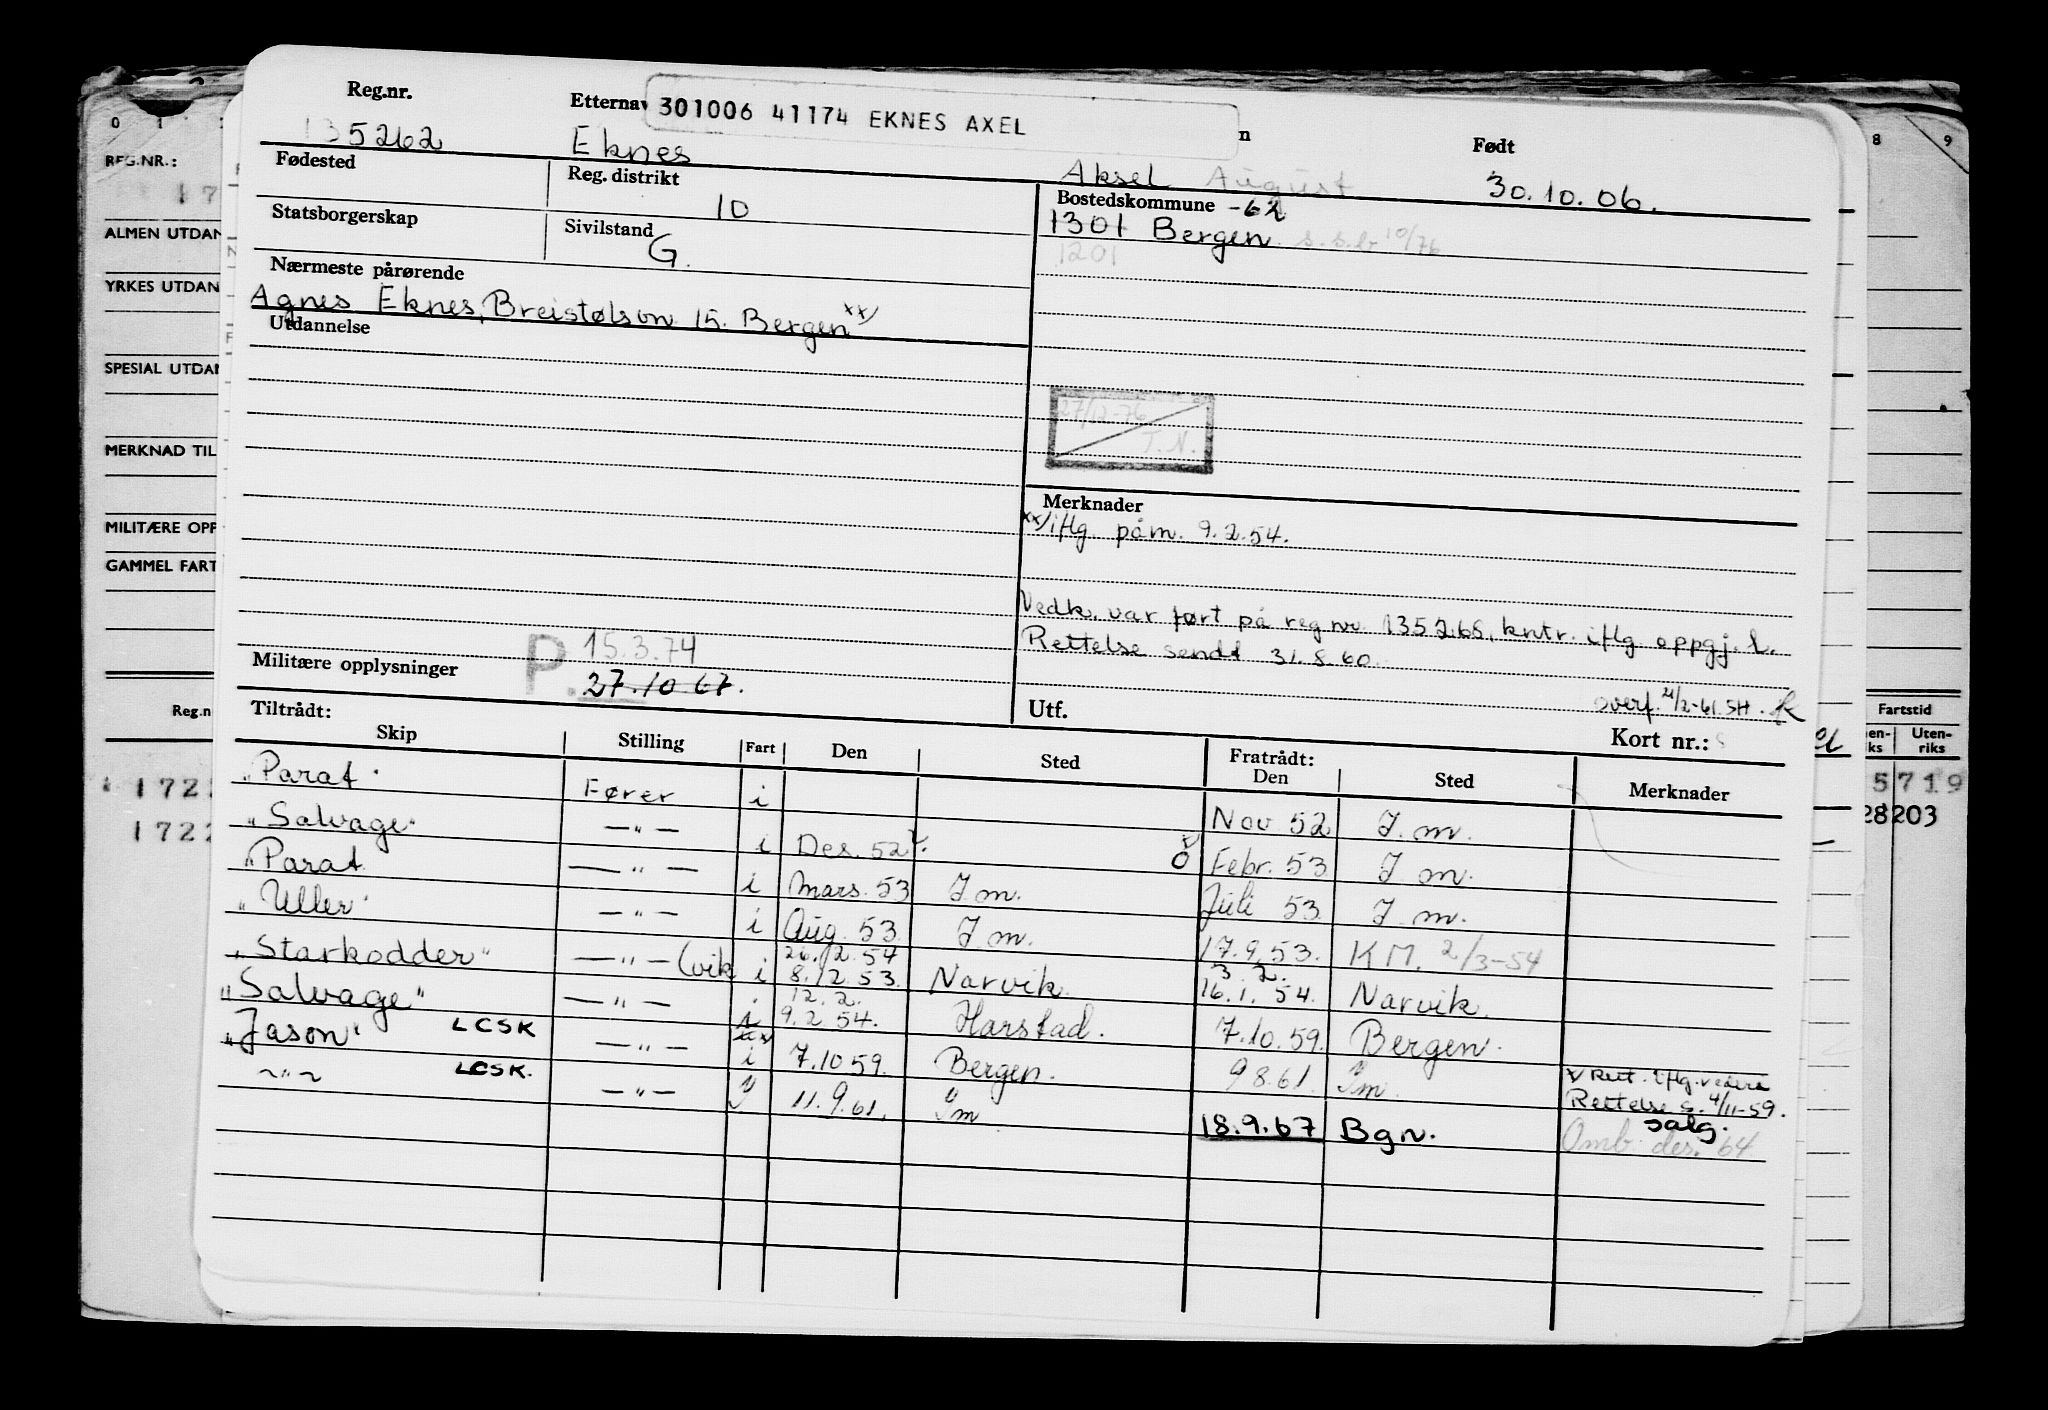 Reg.nr. Etternav 301006 41174 EKNES AXEL n Født
135262 Eknes Aksel August 30.10.06.
Fødested Reg. distrikt 10 Bostedskommune -62
1301 Bergen s.s.b 10/76
1201
Statsborgerskap Sivilstand G.
Nærmeste pårørende
Agnes Eknes, Breistølsvn 15. Bergen xx/
Utdannelse
27/12-76
T.N.
Merknader
xx/ iflg. påm. 9.2.54.
Vedk. var ført på reg nr. 135268, kntr. iflg oppgj. l.
Rettelse sendt 31.8.60.
Militære opplysninger P. 15.3.74
27.10.67.
overf. 21/2-61 SH. K
Tiltrådt: Utf. Kort nr.:
Skip Stilling Fart Den Sted Fratrådt: Den Sted Merknader
"Parat" Fører i Nov 52 I. m.
"Salvage" —"— i Des. 52 x. x/ o Febr. 53 I m.
"Parat —"— i Mars. 53 I m. Juli 53 I m.
"Uller" —"— i Aug. 53 I m. 17.9.53. KM. 2/3-54
"Starkodder" —"— (vik i 26.12.54 8.12.53. Narvik 3 2. 16.1.54. Narvik.
"Salvage" —"— i 12.2. 9.2 54. Harstad. 7.10.59. Bergen.
"Jason" LCSK —"— i 7.10 59. Bergen. 9 8.61. Im. x/ Rett. iflg. vedere
Rettelse s. 4/11-59.
~"~ LCSK. —"— 11.9.61. Im 18.9.67 Bgn. salg.
Omb. des. 64
0 1 8 9
REG.NR.:
17
ALMEN UTDAN
YRKES UTDAN
SPESIAL UTDAN
MERKNAD TIL
MILITÆRE OPP
GAMMEL FART
Reg.n
172
1722
Fartstid
en-
ks Uten-
riks
5719
28203